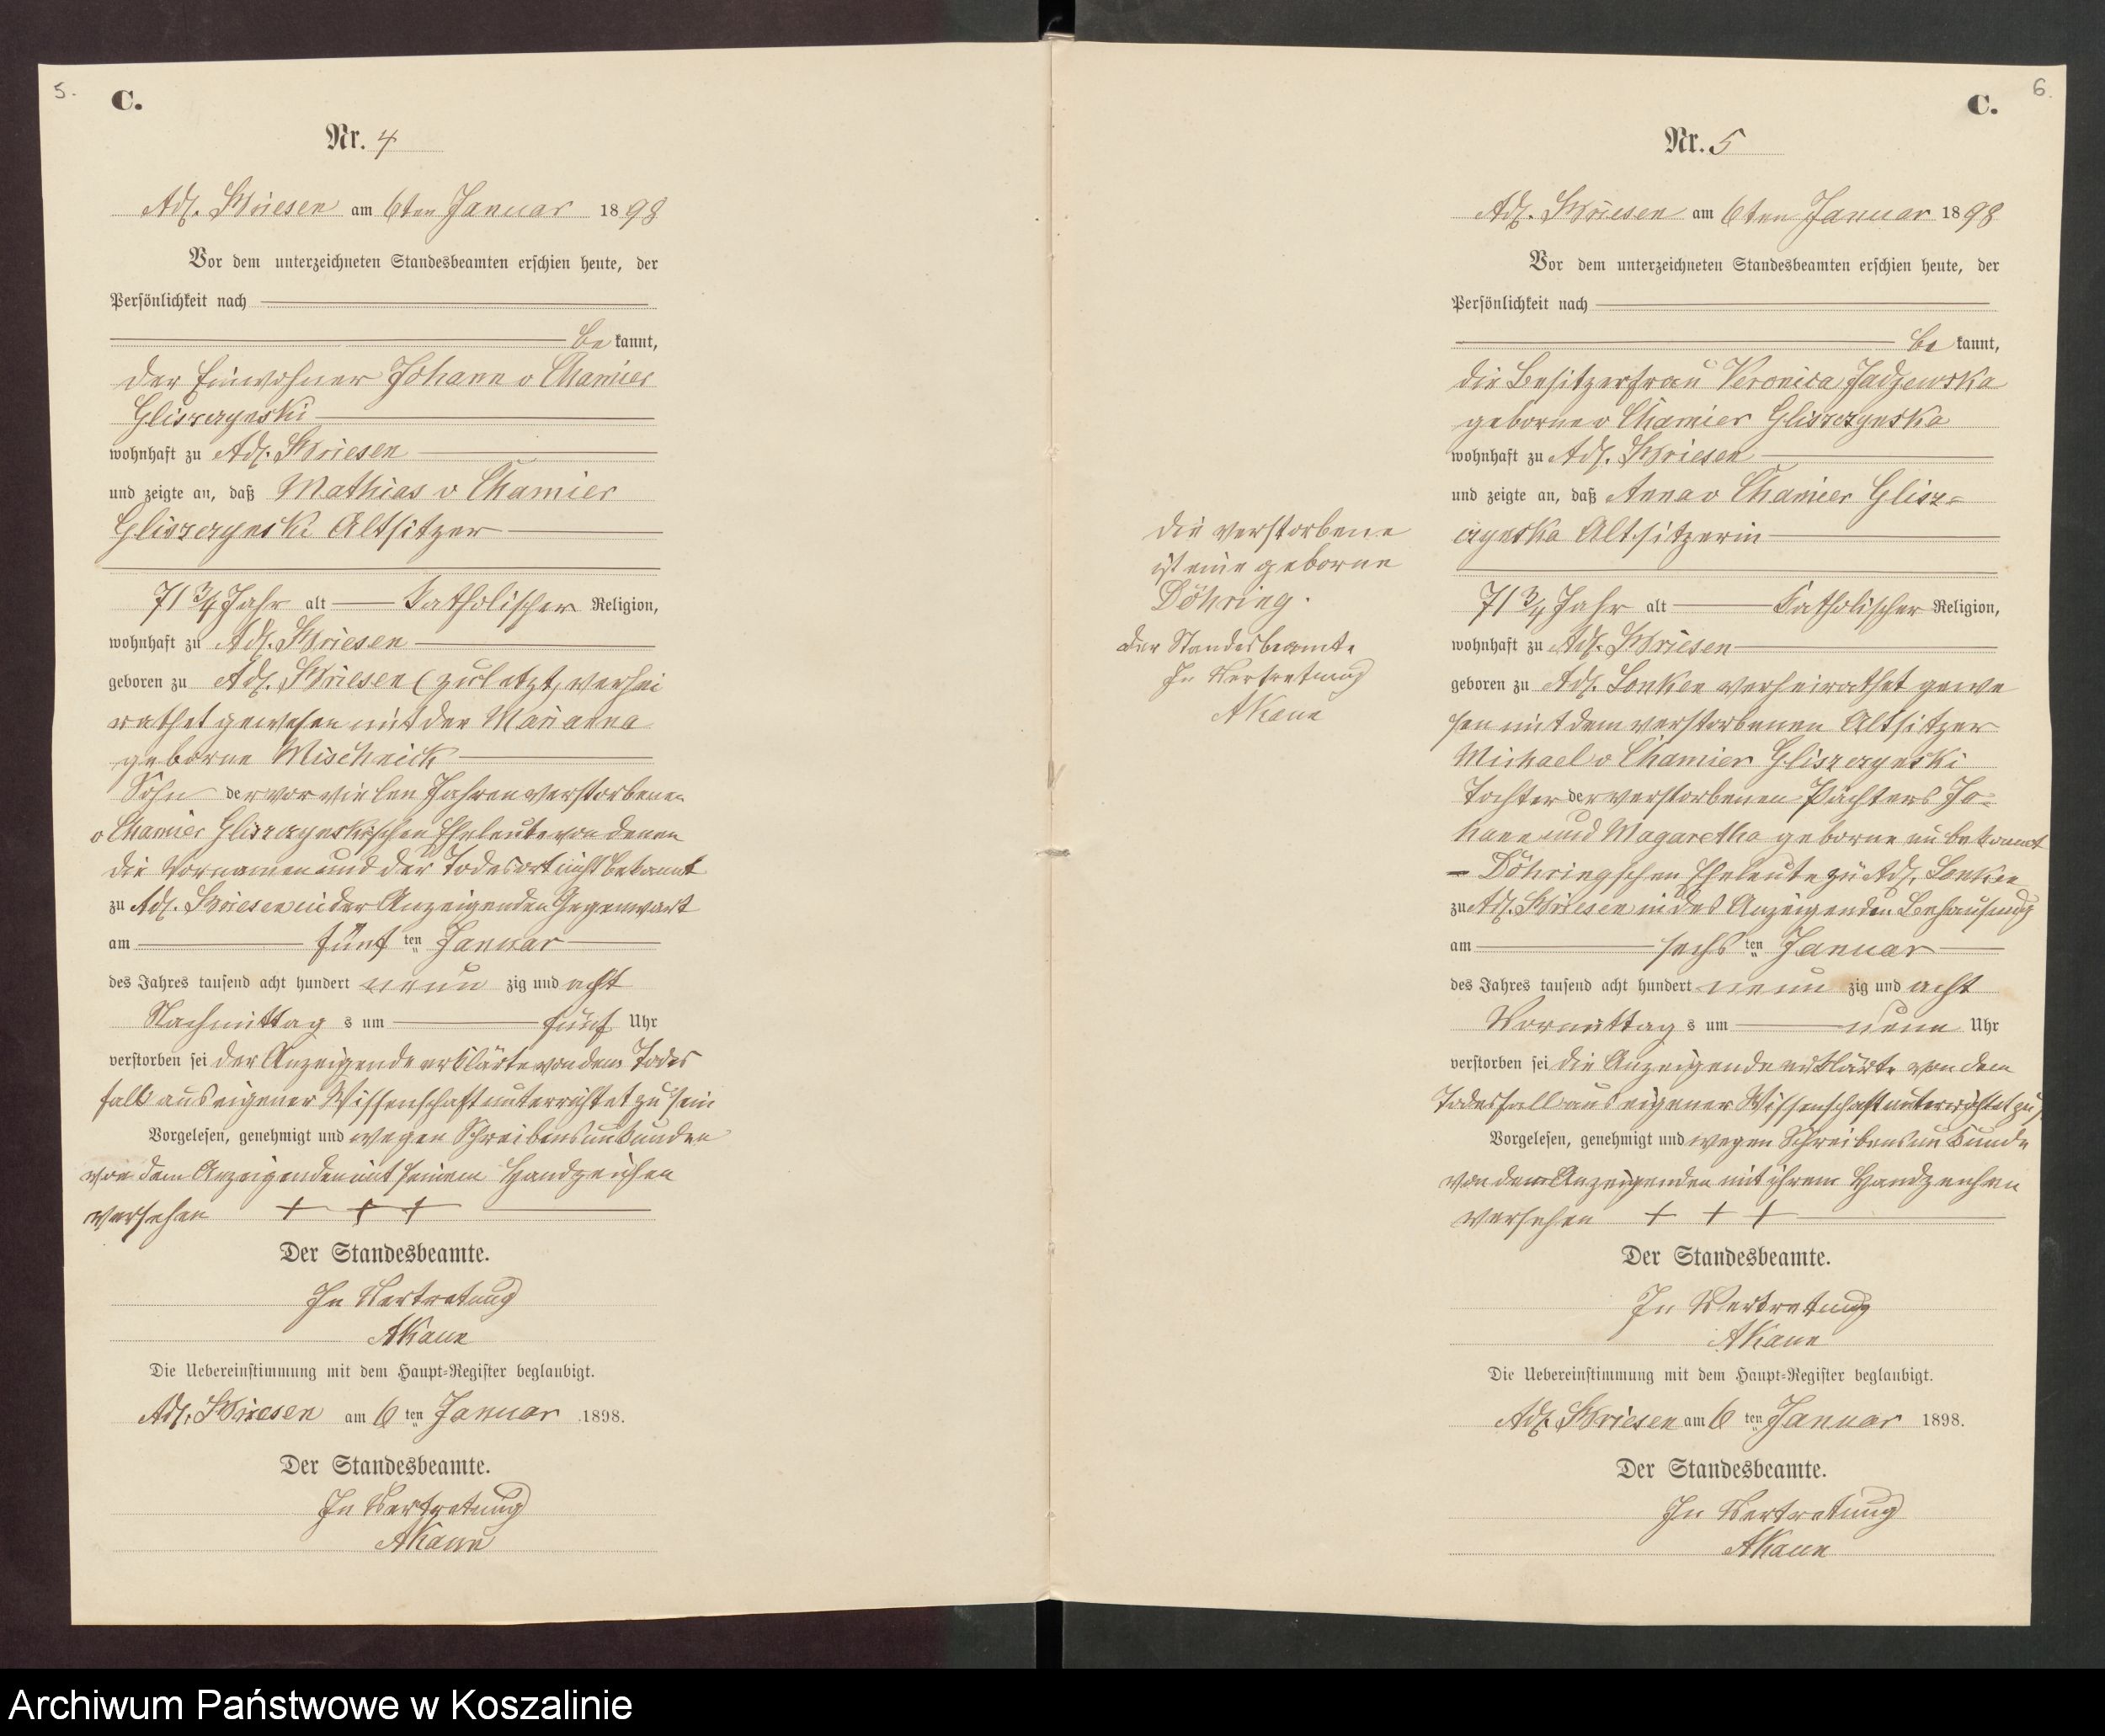 5.
C.
Nr. 4
Adl. Briesen am 6ten Januar 1898
Vor dem unterzeichneten Standesbeamten erschien heute, der
Persönlichkeit nach
be kannt,
der Einwohner Johann v Chamier
Gliszczynski
wohnhaft zu Adl. Briesen
und zeigte an, daß Mathias v Chamier
Gliszczynski Altsitzer
71 3/4 Jahr alt Katholischer Religion,
wohnhaft zu Adl. Briesen
geboren zu Adl. Briesen (zuletzt, verhei
rathet gewesen mit der Marianna
geborne Mischnick
Sohn der vor vielen Jahren verstorbenen
v Chamier Gliszczynskischen Eheleute von denen
die Vornamen und der Todesort nicht bekannt
zu Adl. Briesen in der Anzeigenden Gegenwart
am fünf ten Januar
des Jahres tausend acht hundert neun zig und acht
Nachmittag s um fünf Uhr
verstorben sei der Anzeigende erklärte von dem Todes
fall aus eigener Wissenschaft unterrichtet zu sein
Vorgelesen, genehmigt und wegen Schreibensunkunden
von dem Anzeigenden mit seinem Handzeichen
versehen + + +
Der Standesbeamte.
In Vertretung
AKane
Die Uebereinstimmung mit dem Haupt-Register beglaubigt.
Adl. Briesen am 6 ten Januar 1898.
Der Standesbeamte.
In Vertretung
AKane
6.
C.
Nr. 5
Adl. Briesen am 6ten Januar 1898
Vor dem unterzeichneten Standesbeamten erschien heute, der
Persönlichkeit nach
be kannt,
die Besitzerfrau Veronica Jadzewska
geborne v Chamier Gliszczynska
wohnhaft zu Adl. Briesen
und zeigte an, daß Anna v Chamier Glisz=
czynska Altsitzerin
71 3/4 Jahr alt Katholischer Religion,
wohnhaft zu Adl. Briesen
geboren zu Adl. Lonken verheirathet gewe
sen mit dem verstorbenen Altsitzer
Michael v Chamier Gliszczynski
Tochter der verstorbenen Pächters Jo=
hann und Magaretha geborne unbekannt
- Döhringschen Eheleute zu Adl. Lonken
zu Adl. Briesen in des Anzeigenden Behausung
am sechs ten Januar
des Jahres tausend acht hundert neun zig und acht
Vormittag s um neun Uhr
verstorben sei die Anzeigende erklärte von dem
Todesfall aus eigener Wissenschaft unterrichtet zu
Vorgelesen, genehmigt und wegen Schreibensunkunde
von dem Anzeigenden mit ihrem Handzeichen
versehen + + +
Der Standesbeamte.
In Vertretung
AKane
Die Uebereinstimmung mit dem Haupt-Register beglaubigt.
Adl. Briesen am 6 ten Januar 1898.
Der Standesbeamte.
In Vertretung
AKane
die verstorbene
ist eine geborne
Döhring.
der Standesbeamte
In Vertretung
AKane
Archiwum Państwowe w Koszalinie